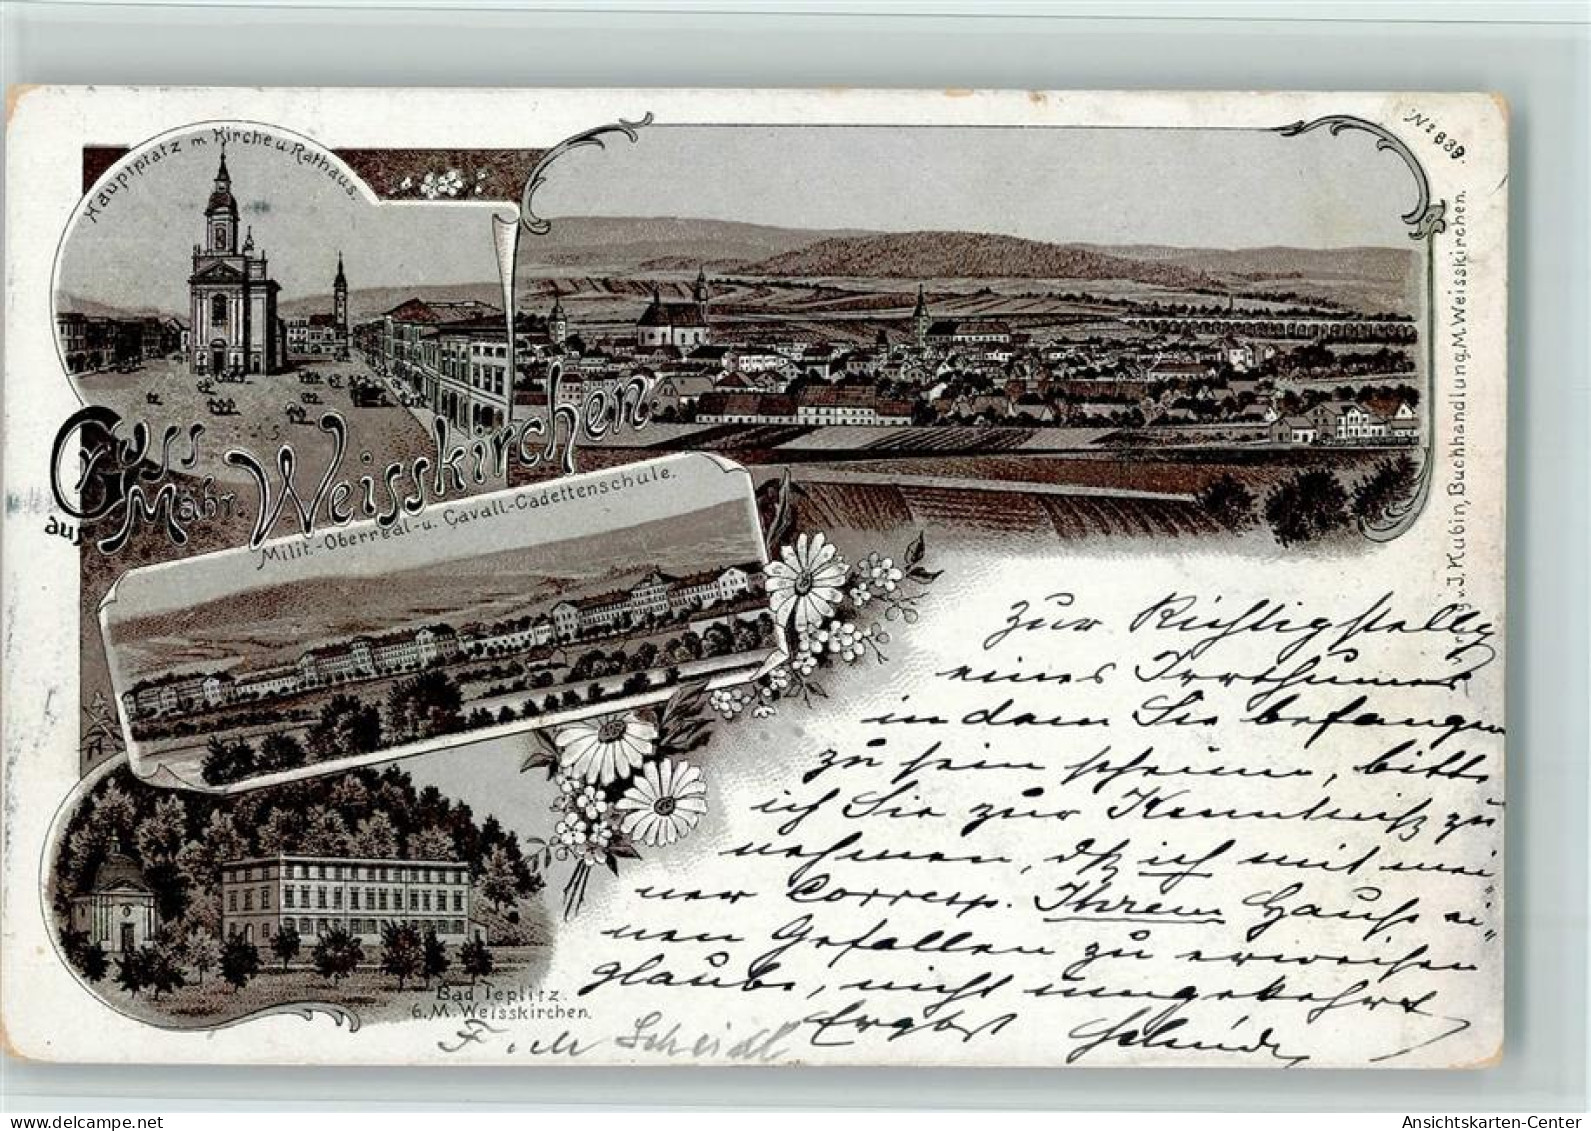 Hauptplatz m. Kirche u. Rathaus.
No 839.
Gruss
aus Mähr. Weisskirchen
Milit.-Oberreal- u. Cavall.-Cadettenschule.
Bad Teplitz.
b. M. Weisskirchen.
J. Kubin, Buchhandlung, M. Weisskirchen.
Zur Richtigstellg
eines Irrthumes
in dem Sie befangen
zu sein scheinen, bitte
ich Sie zur Kenntniß zu
nehmen, dß ich mit mei
ner Corresp. Ihrem Hause ei=
nen Gefallen zu erweisen
glaube, nicht umgekehrt
Ergbst
Scheidl
delcampe.net
Ansichtskarten-Center